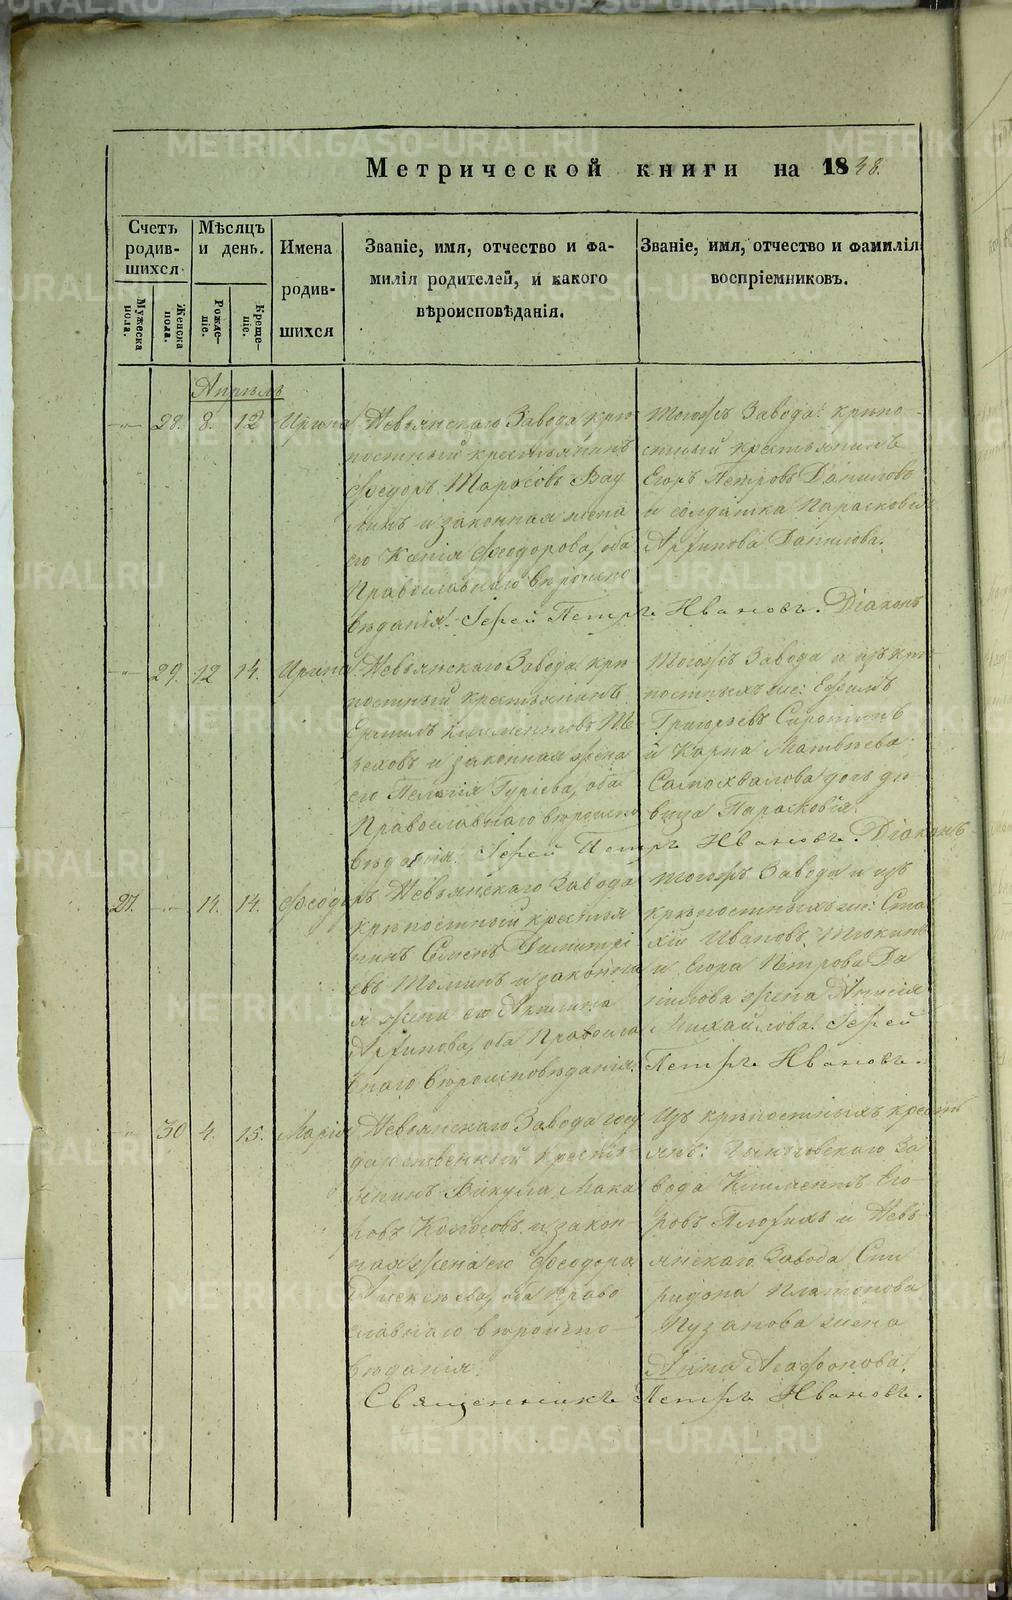 Метрической книги на 1848.
Счетъ родив-шихся
Мѣсяцъ и день.
Имена родив-шихся
Званіе, имя, отчество и фа-
милія родителей, и какого
вѣроисповѣданія.
Званіе, имя, отчество и фамилія
воспріемниковъ.
Мужеска пола.
Женска пола.
Рожде-ніе.
Креще-ніе.
Апрѣль
28. 8. 12 Ирина
Невьянскаго Завода крѣ
постный крестьянинъ
Федоръ Тарасовъ Вау
линъ и законная жена
его Ксенія Феодорова, оба
Православнаго вѣроиспо
вѣданія. Іерей Петръ Ивановъ. Діаконъ
Тогожъ Завода крѣпо-
стный крестьянинъ
Егоръ Петровъ Данилово
и солдатка Парасковья
Архипова Данилова.
29. 12 14. Ирина
Невьянскаго Завода крѣ
постный крестьянинъ
Ермилъ Климентовъ
и законная жена
его Пелагія Гуріева, оба
Православнаго вѣроиспо
вѣданія. Іерей Петръ Ивановъ. Діаконъ
Тогожъ Завода и изъ крѣ-
постныхъ же: Ефимъ
Григорьевъ Сиротинъ
и Карпа Матвѣева
Самохвалова дочь дѣ
вица Парасковія.
27. 14. 14. Феодоръ
Невьянскаго Завода
крѣпостный крестья
нинъ Семенъ Димитрі
евъ Томинъ и законна
я жена его Акилина
Архипова, оба Правосла
внаго вѣроисповѣданія.
Тогожъ Завода и изъ
крѣпостныхъ же: Ста
хій Ивановъ Тюкинъ
и Егора Петрова Да
нилова жена Анисія
Михайлова. Іерей
Петръ Ивановъ.
30 4. 15. Марія
Невьянскаго Завода госу
дарственный кресть
янинъ Викула Мака
ровъ Колосовъ и закон-
ная жена его Феодора
Алексѣева, оба Право
славнаго вѣроиспо-
вѣданія.
Изъ крѣпостныхъ кресть
янъ: Быньговскаго За
вода Климентъ Его-
ровъ Плохихъ и Невь
янскаго Завода Спи
ридона Платонова
Пузанова жена
Анна Агафонова.
Священникъ Петръ Ивановъ.
METRIKI.GASO-URAL.RU